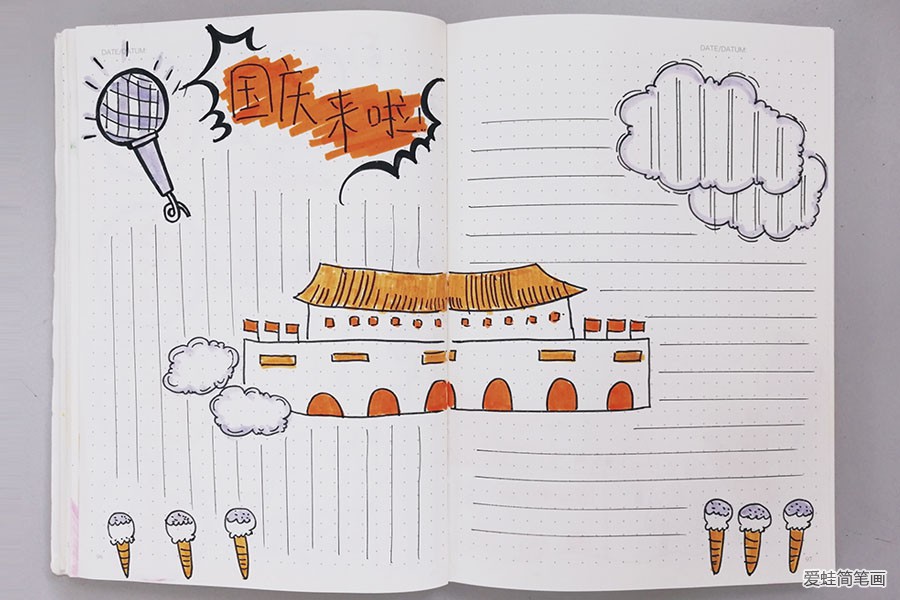 DATE/DATUM
DATE/DATUM
国庆来啦!
爱蛙简笔画